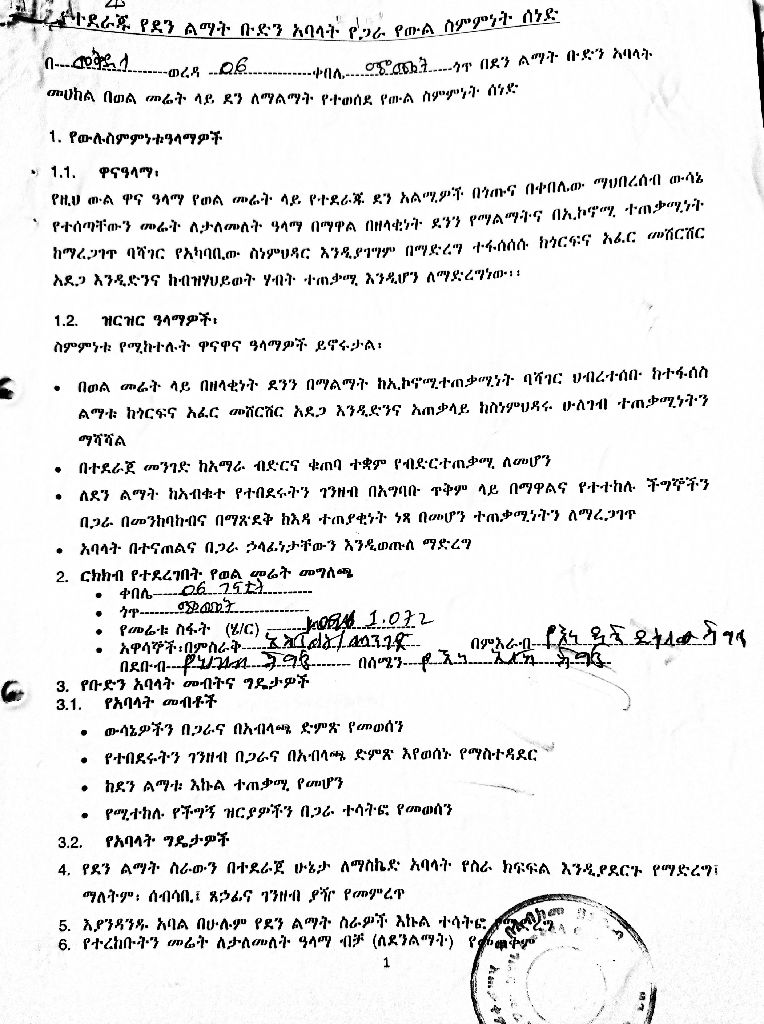 የተደራጁ የደን ልማት ቡድን አባላት የጋራ የውል ስምምነት ሰነድ
በ--- መቅደላ ---ወረዳ 06 ---ቀበሌ ---ጎጥ በደን ልማት ቡድን አባላት
መሀከል በወል መሬት ላይ ደን ለማልማት የተወሰደ የውል ስምምነት ሰነድ
1. የውሉስምምነቱዓላማዎች
1.1. ዋናዓላማ፡
የዚህ ውል ዋና ዓላማ የወል መሬት ላይ የተደራጁ ደን አልሚዎች በጎጡና በቀበሌው ማህበረሰብ ውሳኔ
የተሰጣቸውን መሬት ለታለመለት ዓላማ በማዋል በዘላቂነት ደንን የማልማትና በኢኮኖሚ ተጠቃሚነት
ከማረጋገጥ ባሻገር የአካባቢው ስነምህዳር እንዲያገግም በማድረግ ተፋሰሰሱ ከጎርፍና አፈር መሸርሸር
አደጋ እንዲድንና ከብዝሃህይወት ሃብት ተጠቃሚ እንዲሆን ለማድረግነው፡፡
1.2. ዝርዝር ዓላማዎች፡
ስምምነቱ የሚከተሉት ዋናዋና ዓላማዎች ይኖሩታል፡
• በወል መሬት ላይ በዘላቂነት ደንን በማልማት ከኢኮኖሚተጠቃሚነት ባሻገር ህብረተሰቡ ከተፋሰስ
ልማቱ ከጎርፍና አፈር መሸርሸር አደጋ እንዲድንና አጠቃላይ ከስነምህዳሩ ሁለገብ ተጠቃሚነትን
ማሻሻል
• በተደራጀ መንገድ ከአማራ ብድርና ቁጠባ ተቋም የብድርተጠቃሚ ለመሆን
• ለደን ልማት ከአብቁተ የተበደሩትን ገንዘብ በአግባቡ ጥቅም ላይ በማዋልና የተተከሉ ችግኞችን
በጋራ በመንከባከብና በማጽደቅ ከእዳ ተጠያቂነት ነጻ በመሆን ተጠቃሚነትን ለማረጋገጥ
• አባላት በተናጠልና በጋራ ኃላፊነታቸውን እንዲወጡለ ማድረግ
2. ርክክብ የተደረገበት የወል መሬት መግለጫ
• ቀበሌ--- 06 ---
• ጎጥ---
• የመሬቱ ስፋት (ሄ/ር) --- 1.072
• አዋሳኞች፡በምስራቅ--- በምእራብ---
በደቡብ--- በሰሜን---
3. የቡድን አባላት መብትና ግዴታዎች
3.1. የአባላት መብቶች
• ውሳኔዎችን በጋራና በአብላጫ ድምጽ የመወሰን
• የተበደሩትን ገንዘብ በጋራና በአብላጫ ድምጽ እየወሰኑ የማስተዳደር
• ከደን ልማቱ እኩል ተጠቃሚ የመሆን
• የሚተከሉ የችግኝ ዝርያዎችን በጋራ ተሳትፎ የመወሰን
3.2. የአባላት ግዴታዎች
4. የደን ልማት ስራውን በተደራጀ ሁኔታ ለማስኬድ አባላት የስራ ክፍፍል እንዲያደርጉ የማድረግ፤
ማለትም፡ ሰብሳቢ፤ ጸኃፊና ገንዘብ ያዥ የመምረጥ
5. እያንዳንዱ አባል በሁሉም የደን ልማት ስራዎች እኩል ተሳትፎ
6. የተረከቡትን መሬት ለታለመለት ዓላማ ብቻ (ለደንልማት) የመጠቀም
1